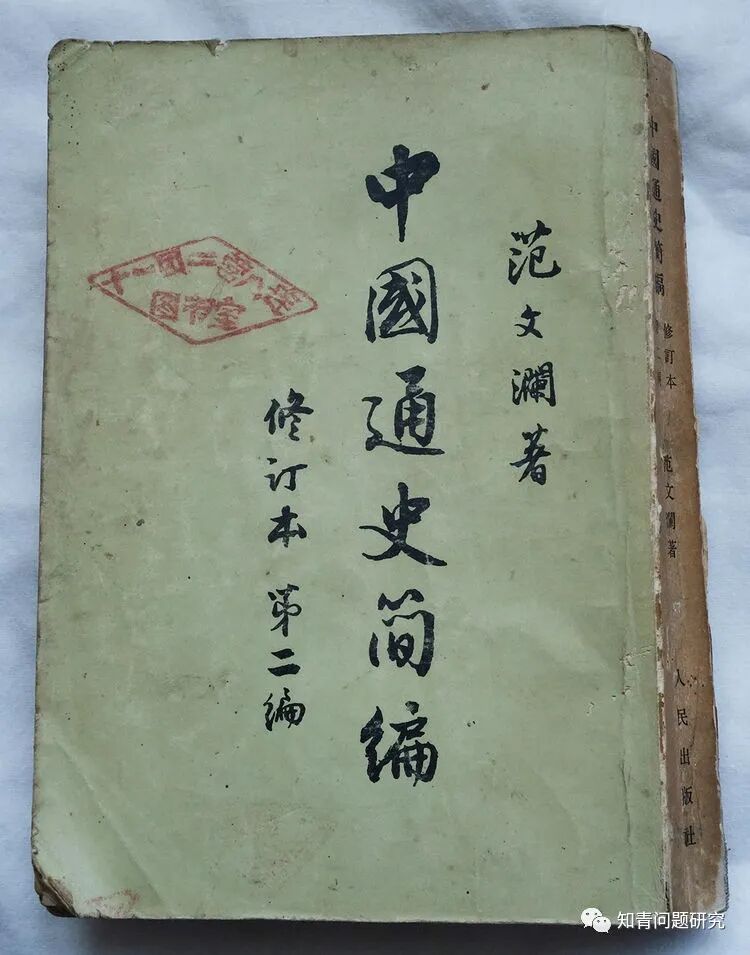 范文瀾著
中國通史簡編
修订本 第二編
十一团二营八连
图书室
中國通史簡編
修訂本
范文瀾著
人民出版社
知青问题研究